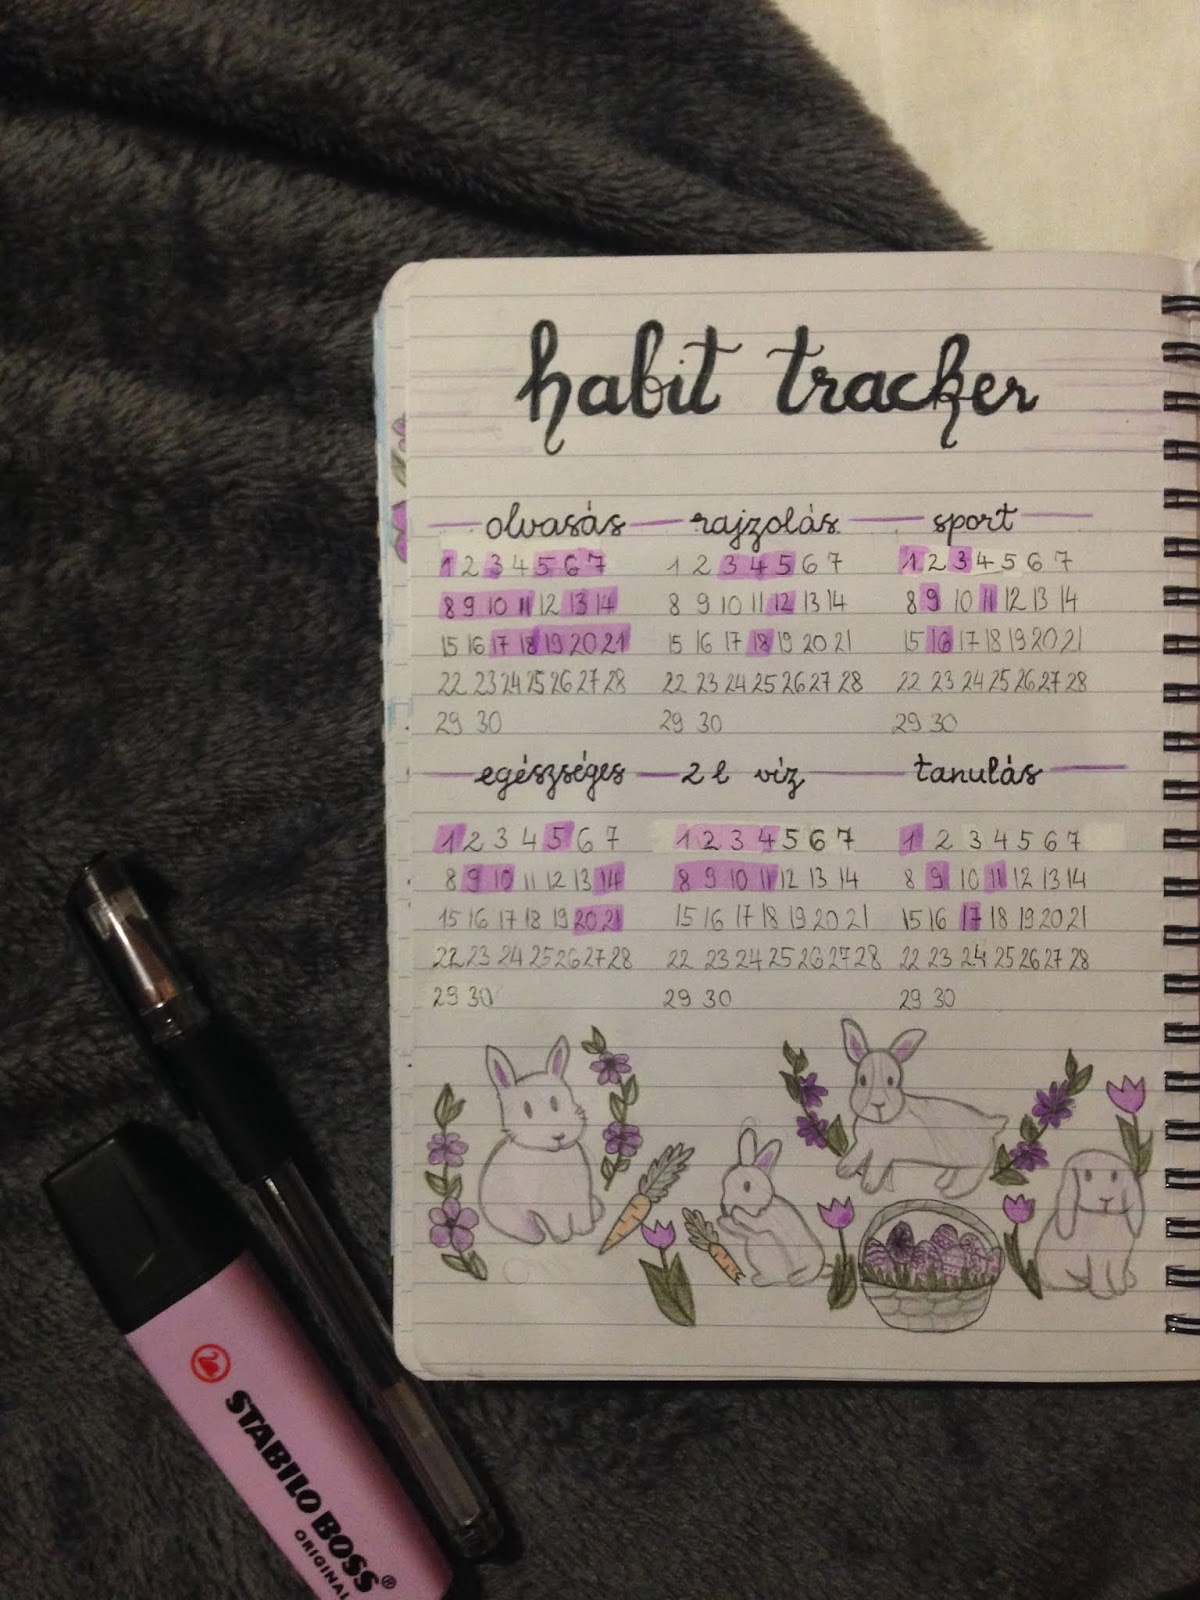 habit tracker
olvasás rajzolás sport
1 2 3 4 5 6 7 1 2 3 4 5 6 7 1 2 3 4 5 6 7
8 9 10 11 12 13 14 8 9 10 11 12 13 14 8 9 10 11 12 13 14
15 16 17 18 19 20 21 15 16 17 18 19 20 21 15 16 17 18 19 20 21
22 23 24 25 26 27 28 22 23 24 25 26 27 28 22 23 24 25 26 27 28
29 30 29 30 29 30
egészséges 2 l víz tanulás
1 2 3 4 5 6 7 1 2 3 4 5 6 7 1 2 3 4 5 6 7
8 9 10 11 12 13 14 8 9 10 11 12 13 14 8 9 10 11 12 13 14
15 16 17 18 19 20 21 15 16 17 18 19 20 21 15 16 17 18 19 20 21
22 23 24 25 26 27 28 22 23 24 25 26 27 28 22 23 24 25 26 27 28
29 30 29 30 29 30
STABILO BOSS®
ORIGINAL